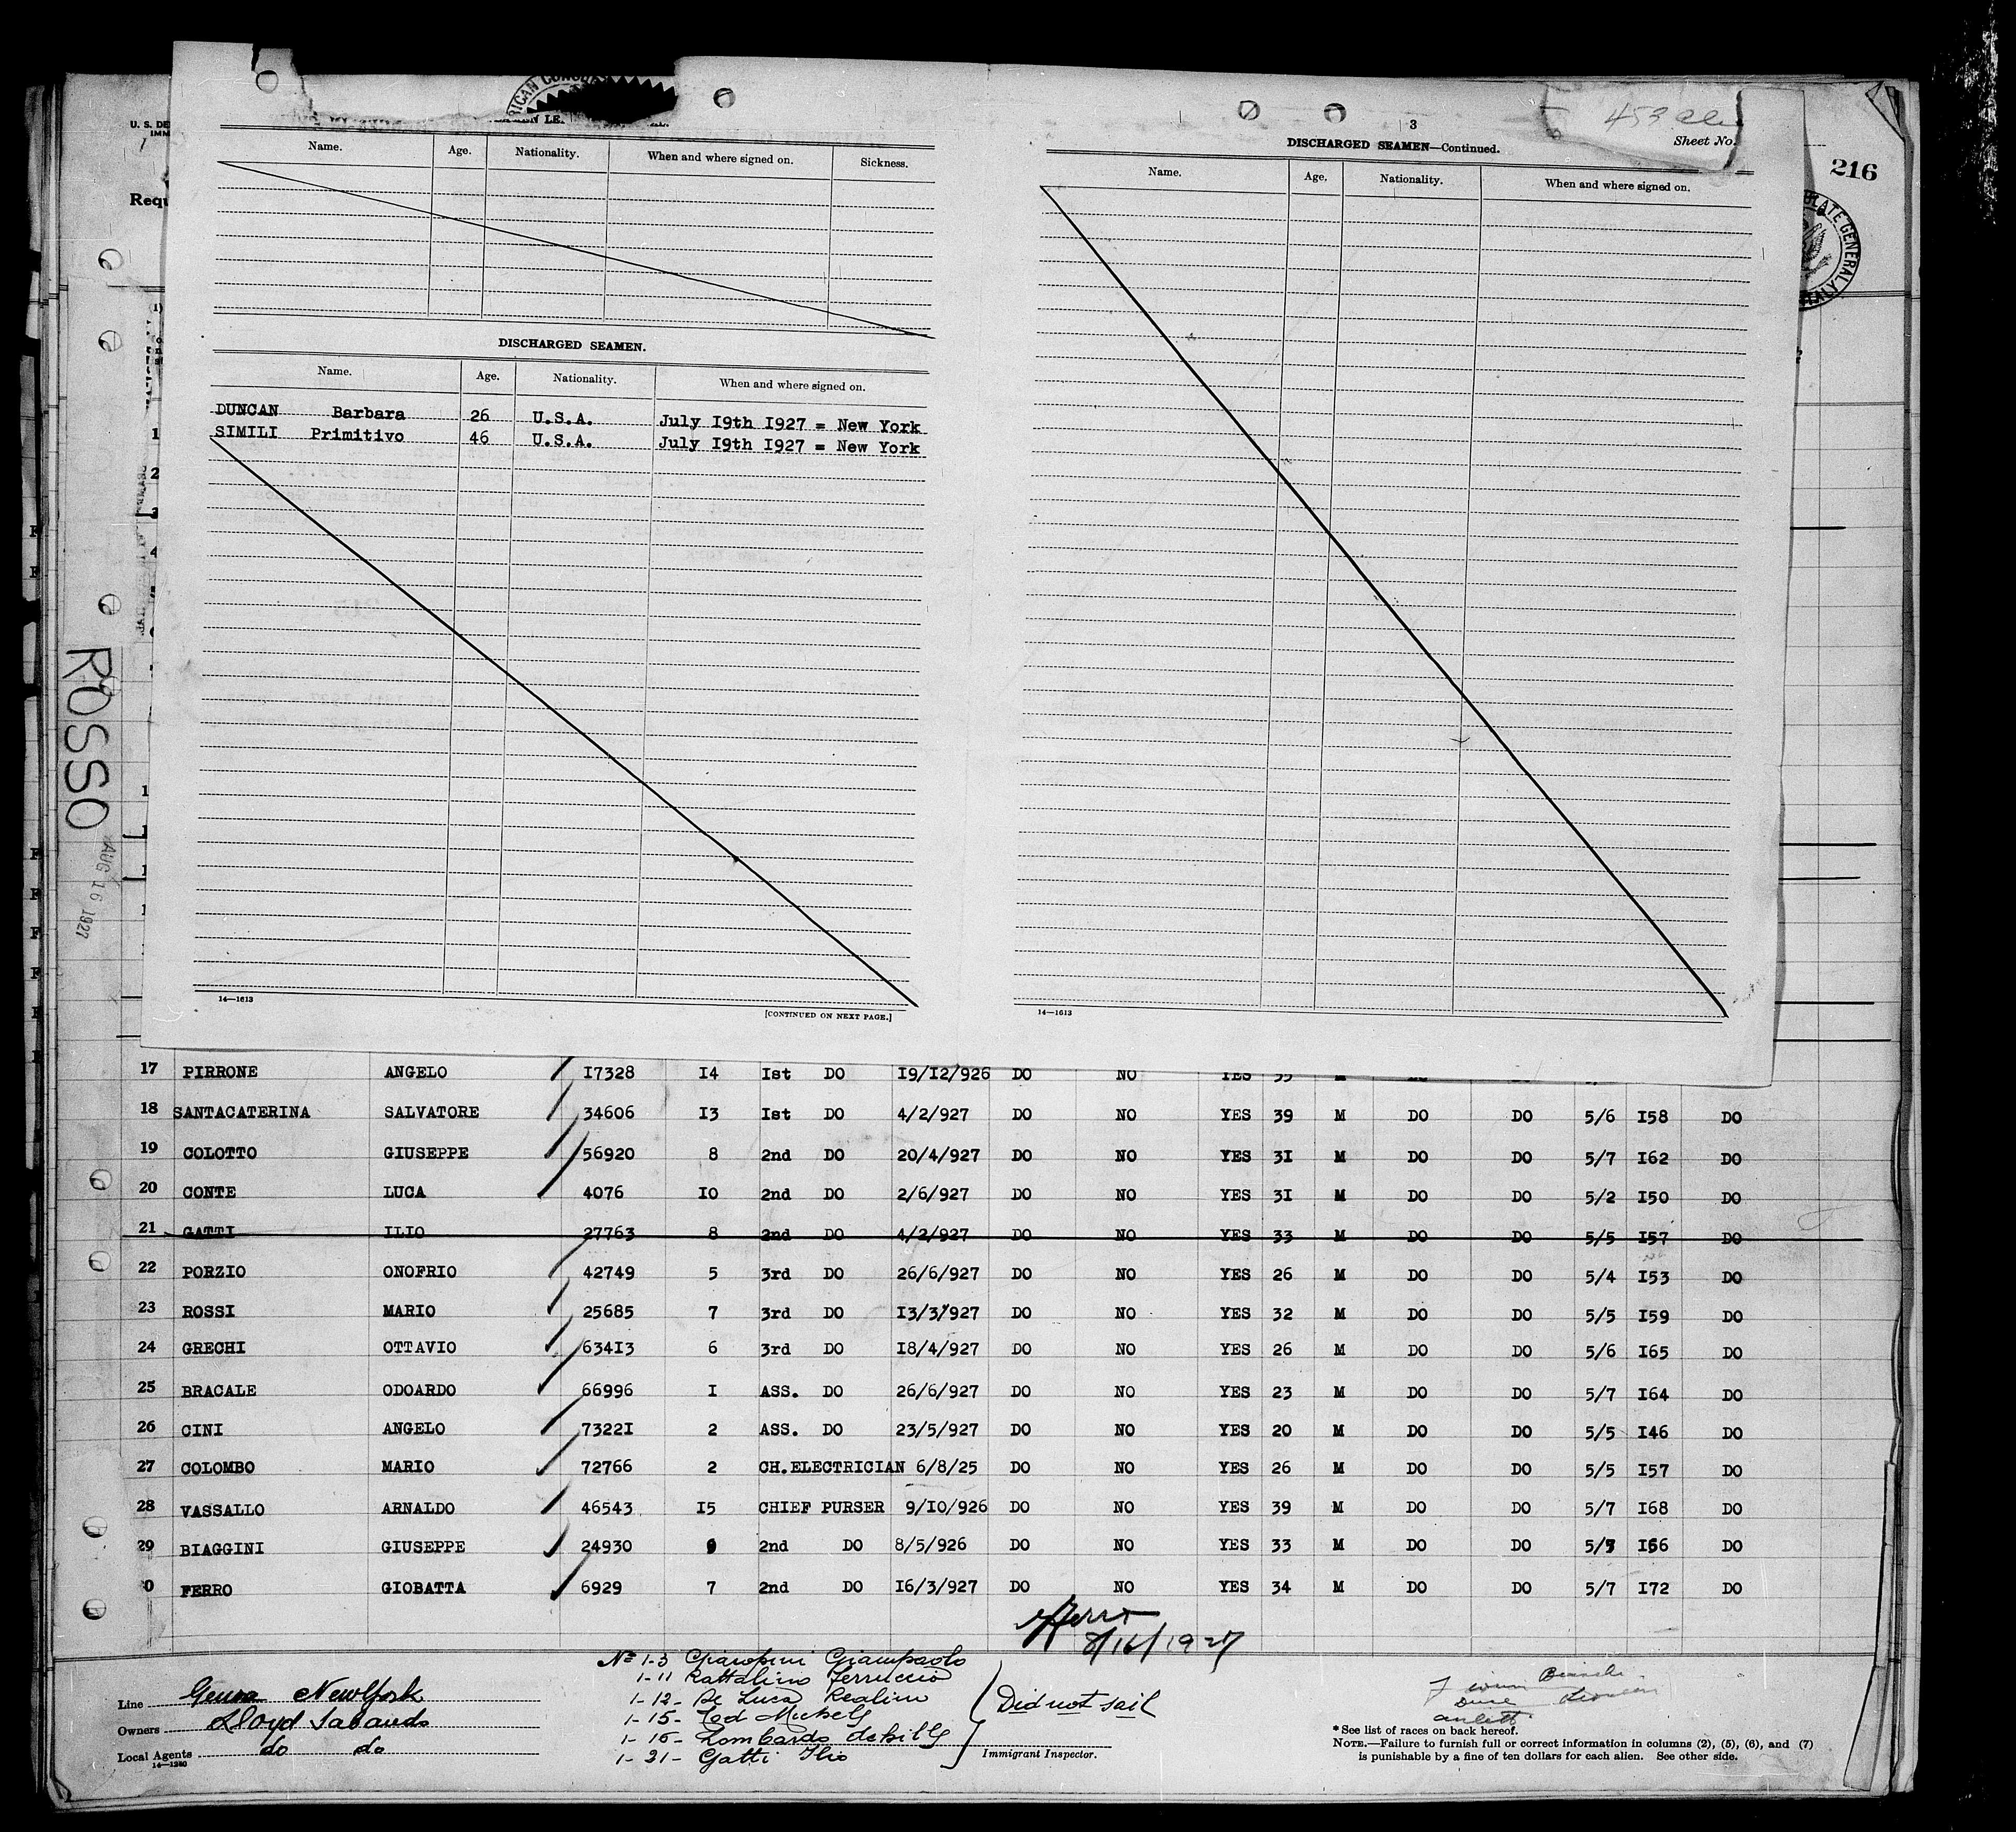 453
3
DISCHARGED SEAMEN—Continued.
Sheet No.
216
U. S. DE
IMM
Requ
Name. Age. Nationality. When and where signed on. Sickness.
Name. Age. Nationality. When and where signed on.
DISCHARGED SEAMEN.
Name. Age. Nationality. When and where signed on.
DUNCAN Barbara 26 U.S.A. July I9th I927 = New York
SIMILI Primitivo 46 U.S.A. July I9th I927 = New York
ROSSO
AUG 16 1927
14—1613
[CONTINUED ON NEXT PAGE.]
14—1613
17 PIRRONE ANGELO I7328 I4 Ist DO I9/I2/926 DO NO YES 35 M
18 SANTACATERINA SALVATORE 34606 I3 Ist DO 4/2/927 DO NO YES 39 M DO DO 5/6 I58 DO
19 COLOTTO GIUSEPPE 56920 8 2nd DO 20/4/927 DO NO YES 3I M DO DO 5/7 I62 DO
20 CONTE LUCA 4076 IO 2nd DO 2/6/927 DO NO YES 3I M DO DO 5/2 I50 DO
21 GATTI ILIO 27763 8 2nd DO 4/2/927 DO NO YES 33 M DO DO 5/5 I57 DO
22 PORZIO ONOFRIO 42749 5 3rd DO 26/6/927 DO NO YES 26 M DO DO 5/4 I53 DO
23 ROSSI MARIO 25685 7 3rd DO I3/3/927 DO NO YES 32 M DO DO 5/5 I59 DO
24 GRECHI OTTAVIO 634I3 6 3rd DO I8/4/927 DO NO YES 26 M DO DO 5/6 I65 DO
25 BRACALE ODOARDO 66996 I ASS. DO 26/6/927 DO NO YES 23 M DO DO 5/7 I64 DO
26 CINI ANGELO 7322I 2 ASS. DO 23/5/927 DO NO YES 20 M DO DO 5/5 I46 DO
27 COLOMBO MARIO 72766 2 CH.ELECTRICIAN 6/8/25 DO NO YES 26 M DO DO 5/5 I57 DO
28 VASSALLO ARNALDO 46543 I5 CHIEF PURSER 9/IO/926 DO NO YES 39 M DO DO 5/7 I68 DO
29 BIAGGINI GIUSEPPE 24930 9 2nd DO 8/5/926 DO NO YES 33 M DO DO I66 DO
0 FERRO GIOBATTA 6929 7 2nd DO I6/3/927 DO NO YES 34 M DO DO 5/7 I72 DO
8/16/1927
Nº 1-3 Giampaolo
1-11 Rattalino Ferruccio
1-12- De Luca Realino
1-15-
1-16- Lombardo
1-21- Gatti Ilio
Did not sail
Immigrant Inspector.
Line Genoa New York
Owners Lloyd Sabaudo
Local Agents do do
14—1240
* See list of races on back hereof.
NOTE.—Failure to furnish full or correct information in columns (2), (5), (6), and (7)
is punishable by a fine of ten dollars for each alien. See other side.